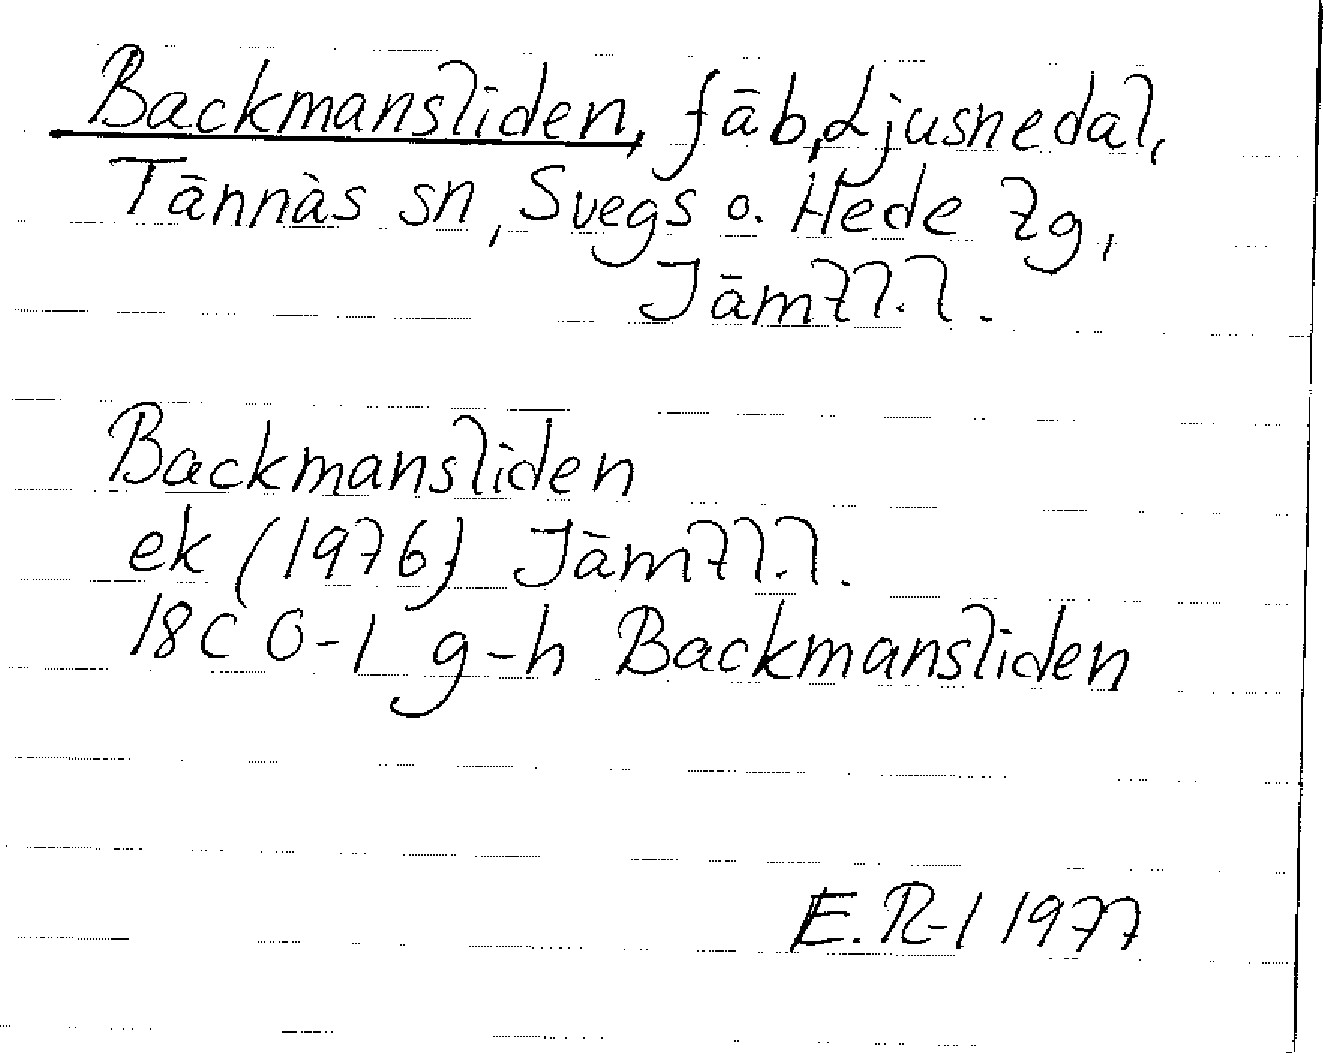 Backmansliden, fäb, Ljusnedal,
Tännäs sn, Svegs o. Hede tg,
Jämtl.l.
Backmansliden
ek (1976) Jämtl.l.
18C 0-1 g-h Backmansliden
E.R-l 1977